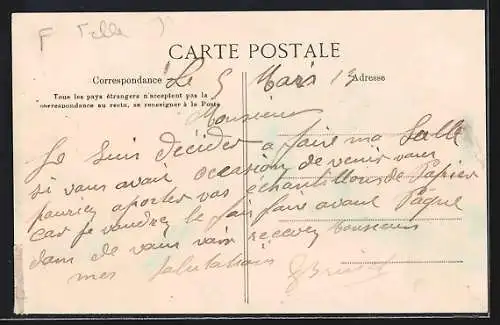 F Salle
CARTE POSTALE
Correspondance Le 5 Mars 13 Adresse
Tous les pays étrangers n'acceptent pas la
correspondance au recto, se renseigner à la Poste
Monsieur
Je suis décidér a faire ma Salle
si vous avait occasion de venir vous
pouriez aporter vos echantillons de Papier
car je voudrez le fair faire avant Pâque
dans de vous voir recevez Monsieur
mes salutations